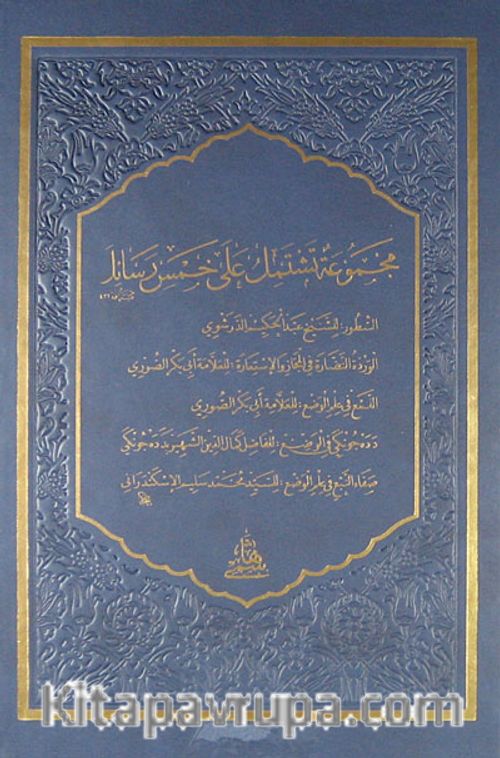 مجموعة تشتمل على خمس رسائل
السطور: للشيخ عبد الحكيم الدرشوي
الوردة النضارة في المجاز والإستعارة: للعلامة أبي بكر الصوري
النبع في علم الوضع: للعلامة أبي بكر الصوري
دده جونكي في الوضع: للفاضل كمال الدين الشهير بدده جونكي
صفاء النبع في علم الوضع: للسيد محمد سليم الإسكندراني
Kitapavrupa.com